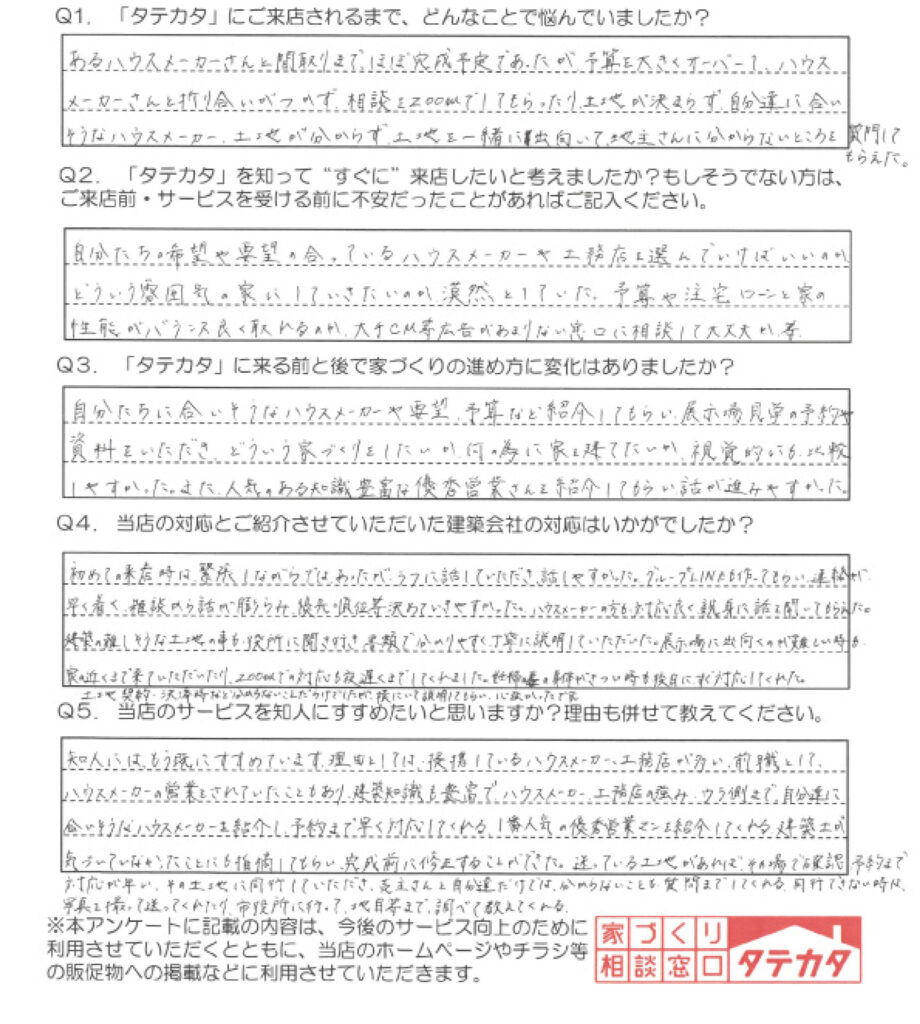 Q1. 「タテカタ」にご来店されるまで、どんなことで悩んでいましたか？
あるハウスメーカーさんと間取りまで、ほぼ完成予定であったが、予算を大きくオーバーして、ハウス
メーカーさんと折り合いがつかず、相談をZOOMでしてもらったり、土地が決まらず、自分達に合い
そうなハウスメーカー、土地が分からず、土地を一緒に出向いて、地主さんに分からないところを質問して
もらえた。
Q2. 「タテカタ」を知って“すぐに”来店したいと考えましたか？もしそうでない方は、
ご来店前・サービスを受ける前に不安だったことがあればご記入ください。
自分たちの希望や要望の合っているハウスメーカーや工務店を選んでいけばいいのか
どういう雰囲気の家にしていきたいのか漠然としていた。予算や住宅ローンと家の
性能がバランス良く取れるのか、大手CM等広告があまりない窓口に相談して大丈夫か、等
Q3. 「タテカタ」に来る前と後で家づくりの進め方に変化はありましたか？
自分たちに合いそうなハウスメーカーや要望、予算など紹介してもらい、展示場見学の予約や
資料をいただき、どういう家づくりをしたいか、何の為に家を建てたいか、視覚的にも比較
しやすかった。また、人気のある知識豊富な優秀営業さんを紹介してもらい話が進みやすかった。
Q4. 当店の対応とご紹介させていただいた建築会社の対応はいかがでしたか？
初めての来店時は、緊張しながらではあったが、ラフに話していただき話しやすかった。グループLINEも作ってもらい、連絡が
早く着く、雑談から話が膨らみ、優先順位等決めていきやすかった。ハウスメーカーの方も、対応良く親身に話を聞いてもらえた。
建築の難しそうな土地の事も役所に聞き行き、書類で分かりやすく丁寧に説明していただいた。展示場に出向くのが難しい時も、
家の近くまで来ていただいたり、ZOOMでの対応も夜遅くまでしてくれました。妊婦の身体がきつい時も後日にずらし対応してくれた。
土地契約・決済時など分からないことだらけでしたが、横にいて説明してもらい、心強かったです
Q5. 当店のサービスを知人にすすめたいと思いますか？理由も併せて教えてください。
知人には、もう既にすすめています。理由としては、提携しているハウスメーカー、工務店が多い、前職として、
ハウスメーカーの営業をされていたこともあり、建築知識も豊富で、ハウスメーカー、工務店の強み、ウラ側まで、自分達に
合いそうなハウスメーカーを紹介し、予約まで早く対応してくれる、1番人気の優秀営業マンを紹介してくれる、建築士が
気づいていなかったことにも指摘してもらい、完成前に修正することができた。迷っている土地があれば、その場で確認、予約まで
対応が早い、その土地に同行していただき、売主さんと自分達だけでは、分からないことも質問までしてくれる、同行できない時は、
写真を撮って送ってくれたり、市役所に行って、地目等まで、調べて教えてくれる。
※本アンケートに記載の内容は、今後のサービス向上のために
利用させていただくとともに、当店のホームページやチラシ等
の販促物への掲載などに利用させていただきます。
家づくり
相談窓口
タテカタ